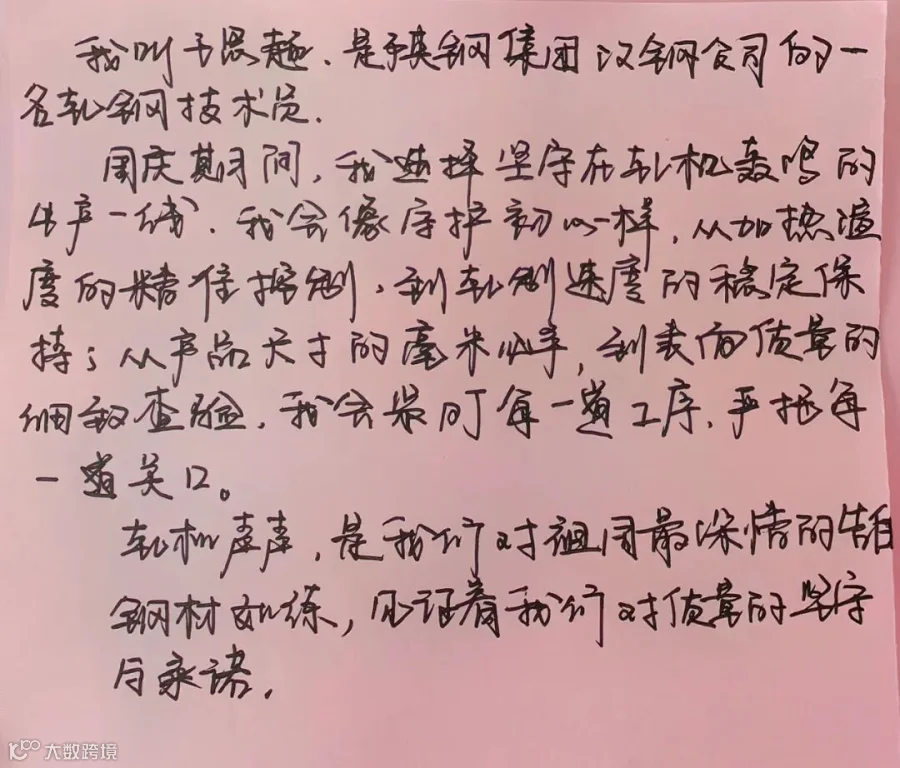 我叫于思趣、是陕钢集团汉钢公司的一
名轧钢技术员.
国庆期间,我选择坚守在轧机轰鸣的
生产一线.我会像守护初心一样,从加热温
度的精准控制,到轧制速度的稳定保
持;从产品尺寸的毫米必争,到表面质量的
细致查验,我会紧盯每一道工序,严把每
一道关口。
轧机声声,是我们对祖国最深情的告白
钢材如练,见证着我们对质量的坚守
与承诺.
大数跨境